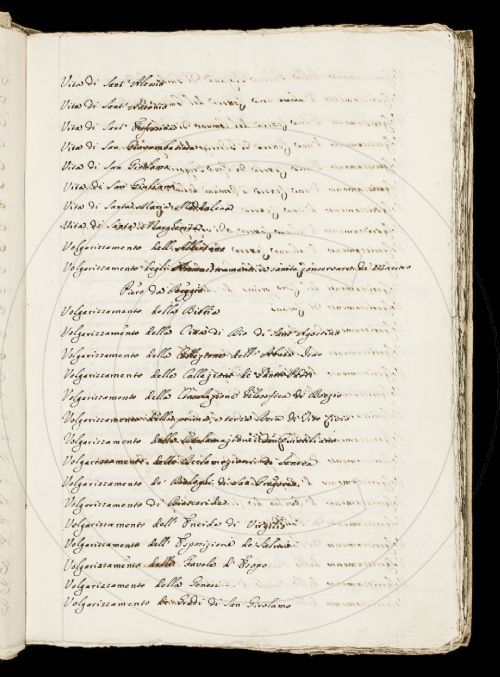 Vita di Sant' Alessio
Vita di Sant' Antonio
Vita di Sant' Eufrosina
Vita di San Giovambatista
Vita di San Girolamo
Vita di San Giuliano
Vita di Santa Maria Maddalena
Vita di Santa Margherita
Volgarizzamento dell' Albertano
Volgarizzamento degli Ammaestramenti a sanità conservare di Maestro
Piero da
Volgarizzamento della Bibbia
Volgarizzamento della Città di Dio di Sant' Agostino
Volgarizzamento della dell' Abate Isac
Volgarizzamento delle Collazioni de' Santi Padri
Volgarizzamento della Consolazione Filosofica di Boezio
Volgarizzamento della prima, e terza Deca di Tito Livio
Volgarizzamento delle Declamazioni di Quintiliano
Volgarizzamento delle Declamazioni di Seneca
Volgarizzamento de' Dialoghi di San Gregorio
Volgarizzamento di Dioscoride
Volgarizzamento dell' Eneide di Virgilio
Volgarizzamento dell' Esposizione de' Salmi
Volgarizzamento delle Favole d' Esopo
Volgarizzamento della Genesi
Volgarizzamento de' Gradi di San Girolamo